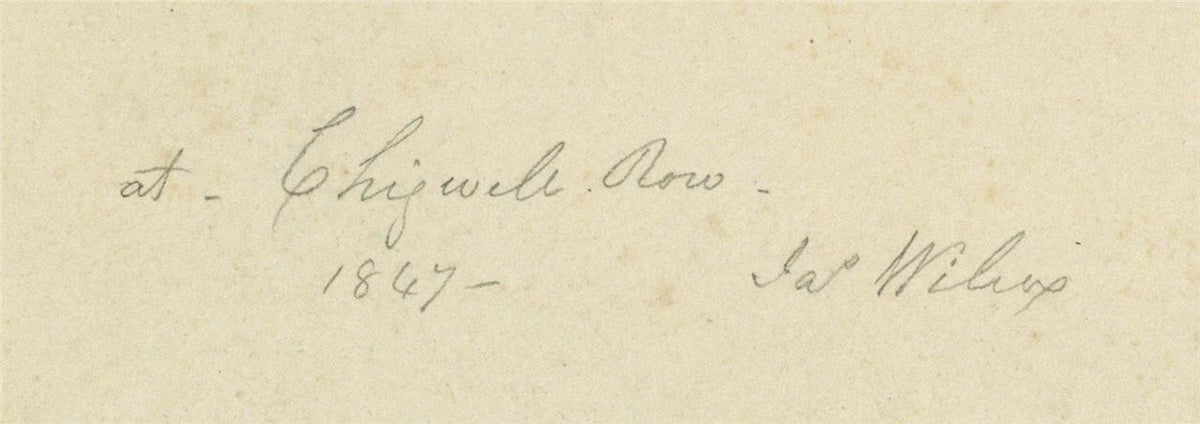 at - Chigwell Row -
1847 - Jas Wilcox